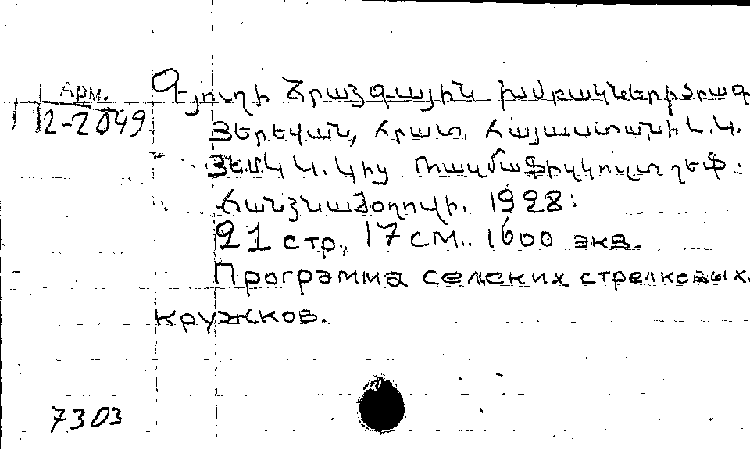 Арм.
12-2049
Գյուղի հրաձգային խմբակների ծրագ
Յերեվան, հրատ. Հայաստանի Լ.Կ.
Յեմ և Կ.Կից
հանձնաժողովի. 1928:
21 стр., 17 см. 1600 экз.
Программа селских стрелковых
кружков.
7303